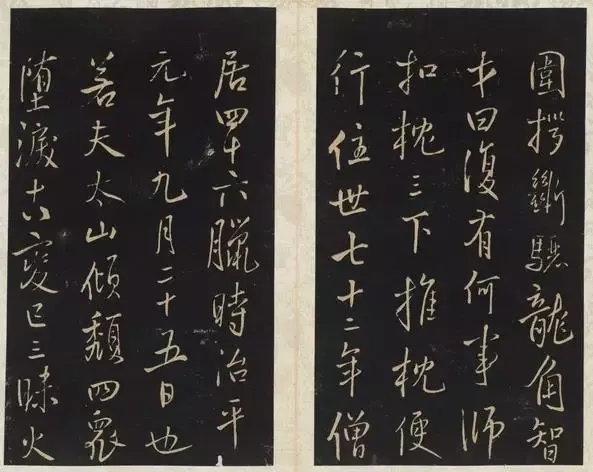 圍拶斷驪龍角智
才曰復有何事師
扣枕三下推枕便
行住世七十二年僧
居四十六臘時治平
元年九月二十五日也
若夫太山傾頹四衆
墮淚十八變已三昧火